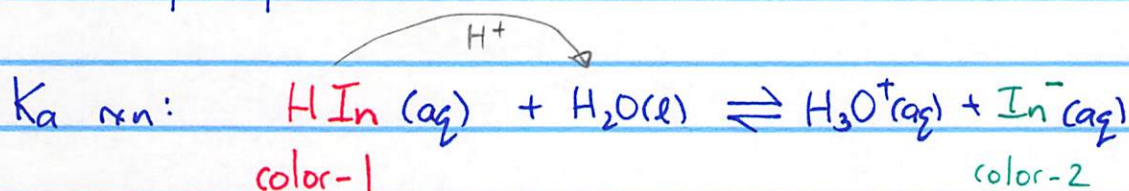 H⁺
Ka rxn: HIn (aq) + H₂O(l) ⇌ H₃O⁺(aq) + In⁻(aq)
color-1 color-2